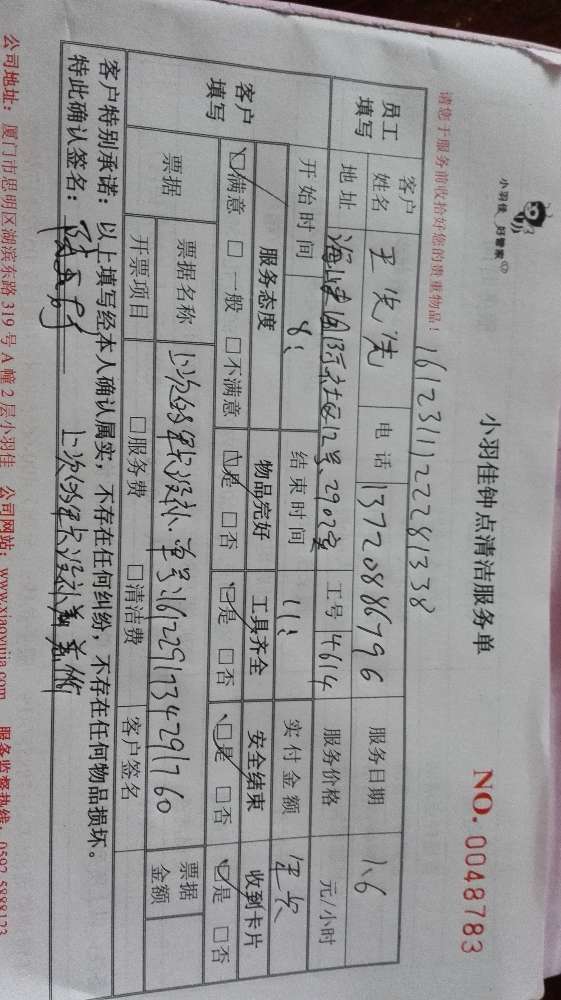 小羽佳 好管家
小羽佳钟点清洁服务单
NO. 0048783
请您于服务前收拾好您的贵重物品！
1612311122281338
员工填写 客户姓名 王先生 电话 13720886796 服务日期 1.6
地址 海峡国际社区12号2902室 工号 4614 服务价格 元/小时
开始时间 8: 结束时间 11: 实付金额 包次
客户填写 服务态度 物品完好 工具齐全 安全结束 收到卡片
☑满意 □一般 □不满意 ☑是 □否 ☑是 □否 ☑是 □否 ☑是 □否
票据 票据名称 上次的单与没补.单号1612291734291760 票据金额
开票项目 □服务费 □清洁费 客户签名
客户特别承诺：以上填写经本人确认属实，不存在任何纠纷，不存在任何物品损坏。
特此确认签名： 上次的单与没补
公司地址：厦门市思明区湖滨东路319号A幢2层小羽佳 公司网站：www.xiaoyujia.com 服务监督热线：0592-5888123